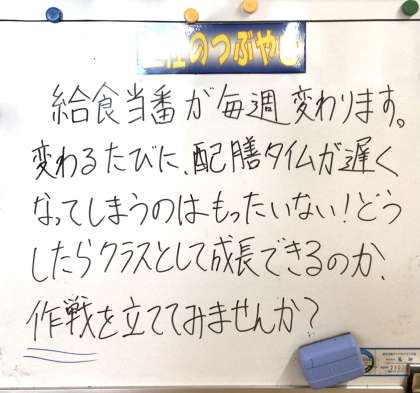 のつぶやき
給食当番が毎週変わります。
変わるたびに、配膳タイムが遅く
なってしまうのはもったいない！どう
したらクラスとして成長できるのか、
作戦を立ててみませんか？